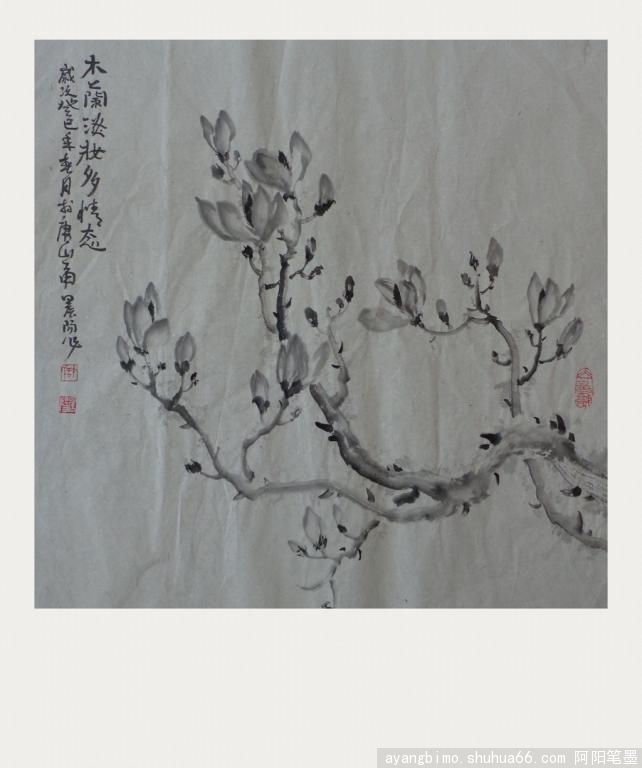 木蘭淡妝多情态
歲次癸巳年春月於唐山南
ayangbimo.shuhua66.com 阿阳笔墨